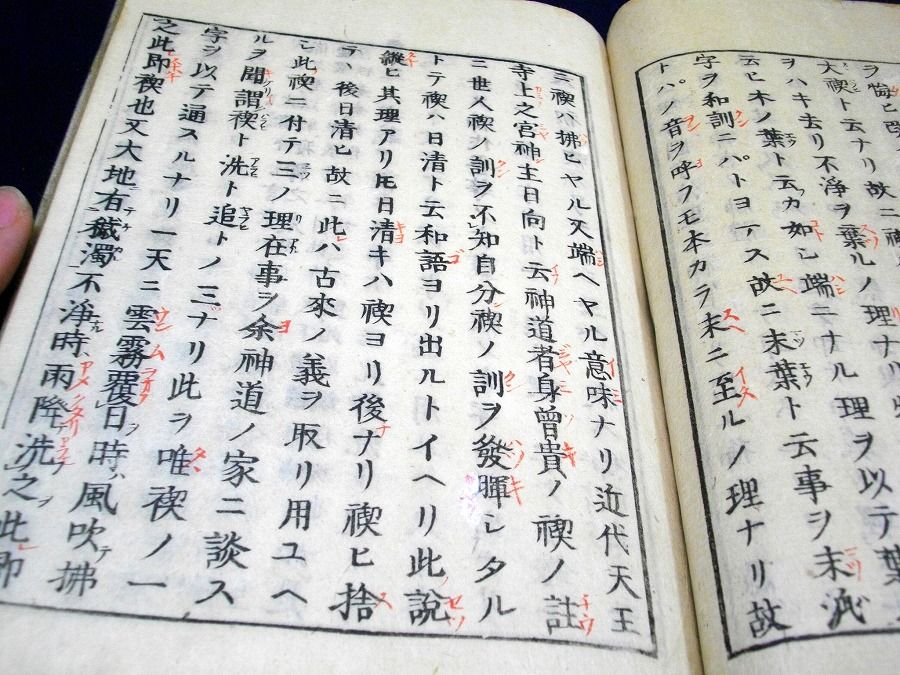 ヲ悔ヒ
大禊ト云ナリ故ニ
ヲハキ去リ不淨ヲ葉ルノ理ナル
云ヒ木ノ葉ト云カ如シ端ニナル理ヲ以テ葉
字ヲ和訓ニパトヨマス故ニ末葉ト云事ヲ末派
トパノ音ヲ呼フモ本カラ末ニ至ルノ理ナリ故
ニ禊ハ拂ヒヤル又端ヘヤル意味ナリ近代天王
寺上之宮神主日向ト云神道者身曾貴ノ禊ノ註
ニ世人禊ノ訓ヲ不知自分禊ノ訓ヲ發暉シタル
トテ禊ハ日清ト云和語ヨリ出ルトイヘリ此說
縱ヒ其理アリ𪜈日清キハ禊ヨリ後ナリ禊ヒ捨
テハ後日清ヒ故ニ此ハ古來ノ義ヲ取リ用ユヘ
シ此禊ニ付テ三ノ理在事ヲ余神道ノ家ニ談ス
ルヲ聞謂禊ト洗ト追トノ三ナリ此ヲ唯禊ノ一
字ヲ以テ通スルナリ一天ニ雲霧覆日時ハ風吹テ拂
之此即禊也又大地有穢濁不淨時雨降洗之此即